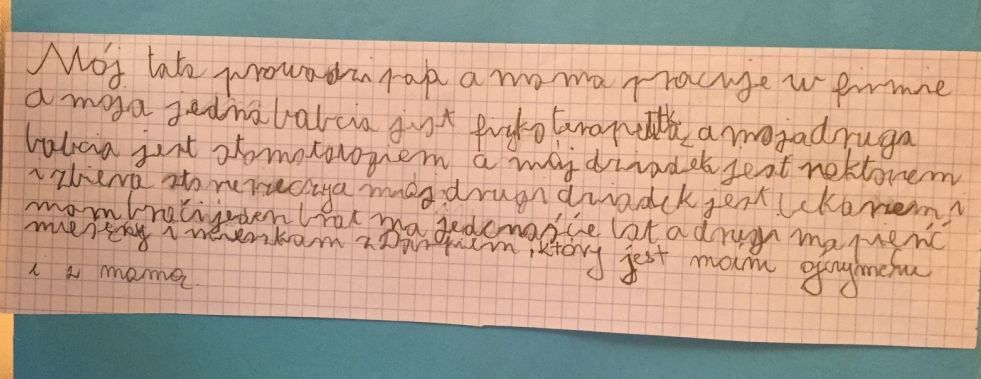 Mój tata prowadzi pap a moma pracuje w firmie
a moja jedna babcia jest fizkoterapełtką a moja druga
babcia jest stomotologiem a mój dziadek jest rektorem
i zbiera sto mój drugi dziadek jest lekarzem i
mom braci jeden brat ma jedenaście lat a drugi ma pienć
i mieszkam z który jest moim ojczymem
i z mamą.